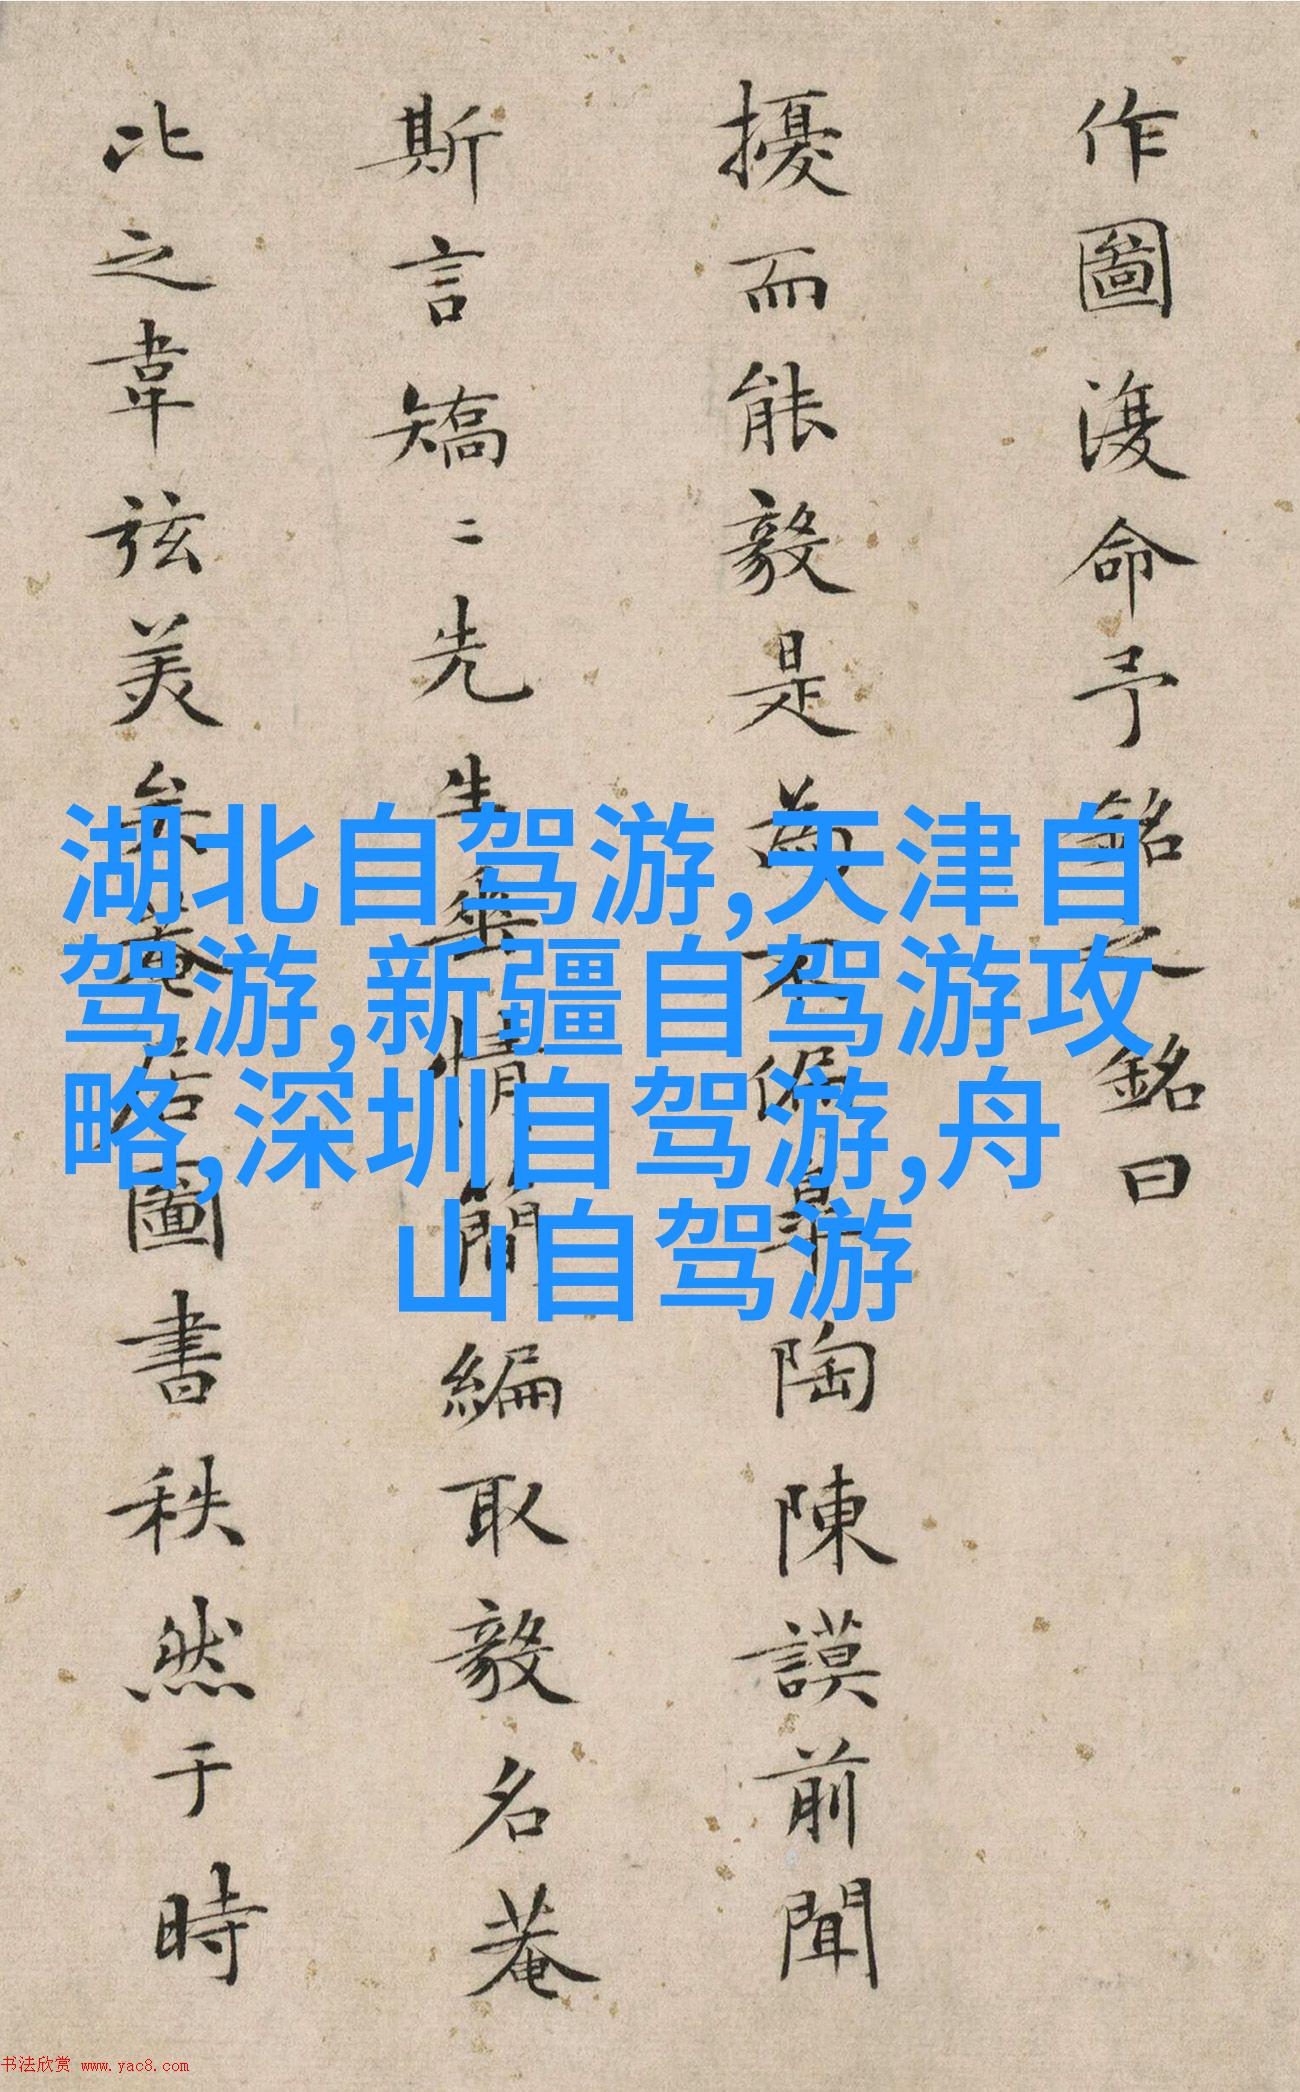 作圖復命予銘之銘曰
擾而能毅是為不偏皋陶陳謨前聞
斯言矯二先生垂情簡編取毅名菴
比之韋弦美矣菴居圖書秩然于時
湖北自驾游,天津自
驾游,新疆自驾游攻
略,深圳自驾游,舟
山自驾游
书法欣赏 www.yac8.com